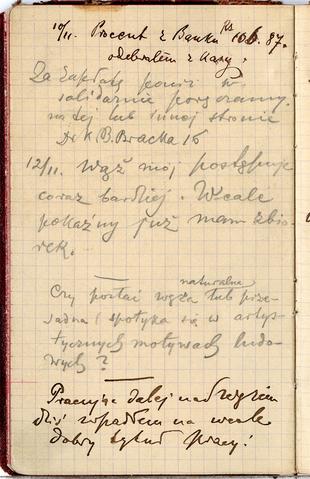 10/11. Procent z Banku Ks 106.87.
odebrałem z Kasy.
Za zapłatę poniż w
solidarnie
na tej lub innej stronie
Dr K. B. Bracka 16
12/11. Wąż mój postępuje
coraz bardziej. Wcale
pokaźny już mam zbio-
rek.
naturalna
Czy postać węża lub prze-
sadna spotyka się w artys-
tycznych motywach ludo-
wych?
Pracując dalej nad wężem
dziś wpadłem na wcale
dobry tytuł pracy!